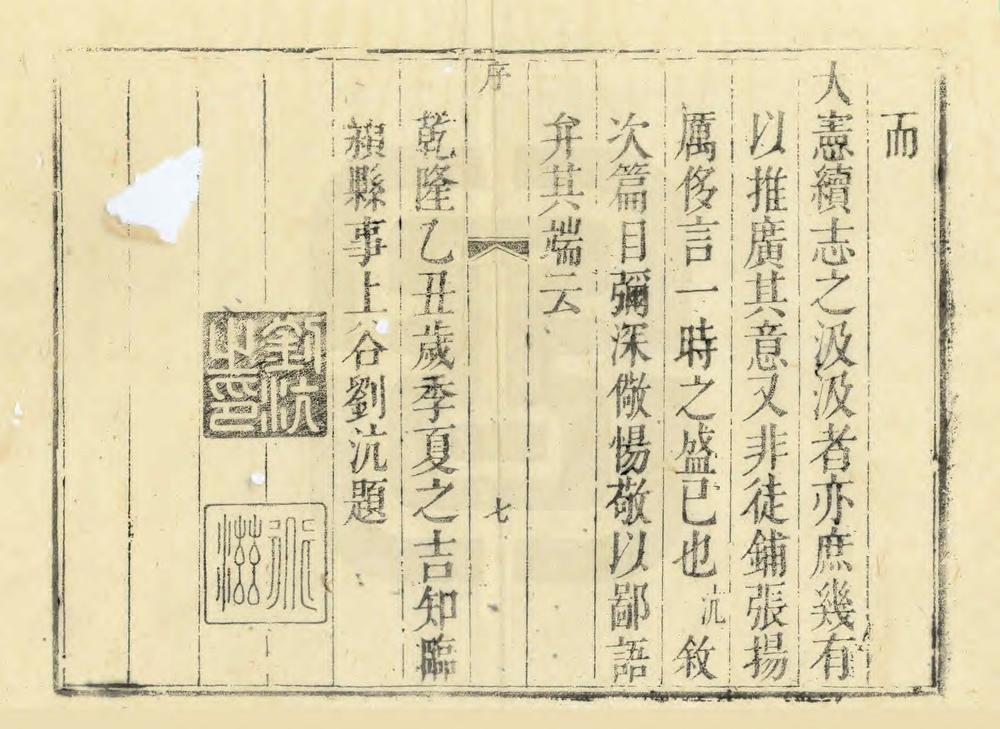 而
人憲續志之汲汲者亦庶幾有
以推廣其意又非徒鋪張揚
厲侈言一時之盛已也沆敘
次篇目彌深儆惕敬以鄙語
弁其端云
序
七
乾隆乙丑歲季夏之吉知臨
潁縣事上谷劉沆題
劉沆之印